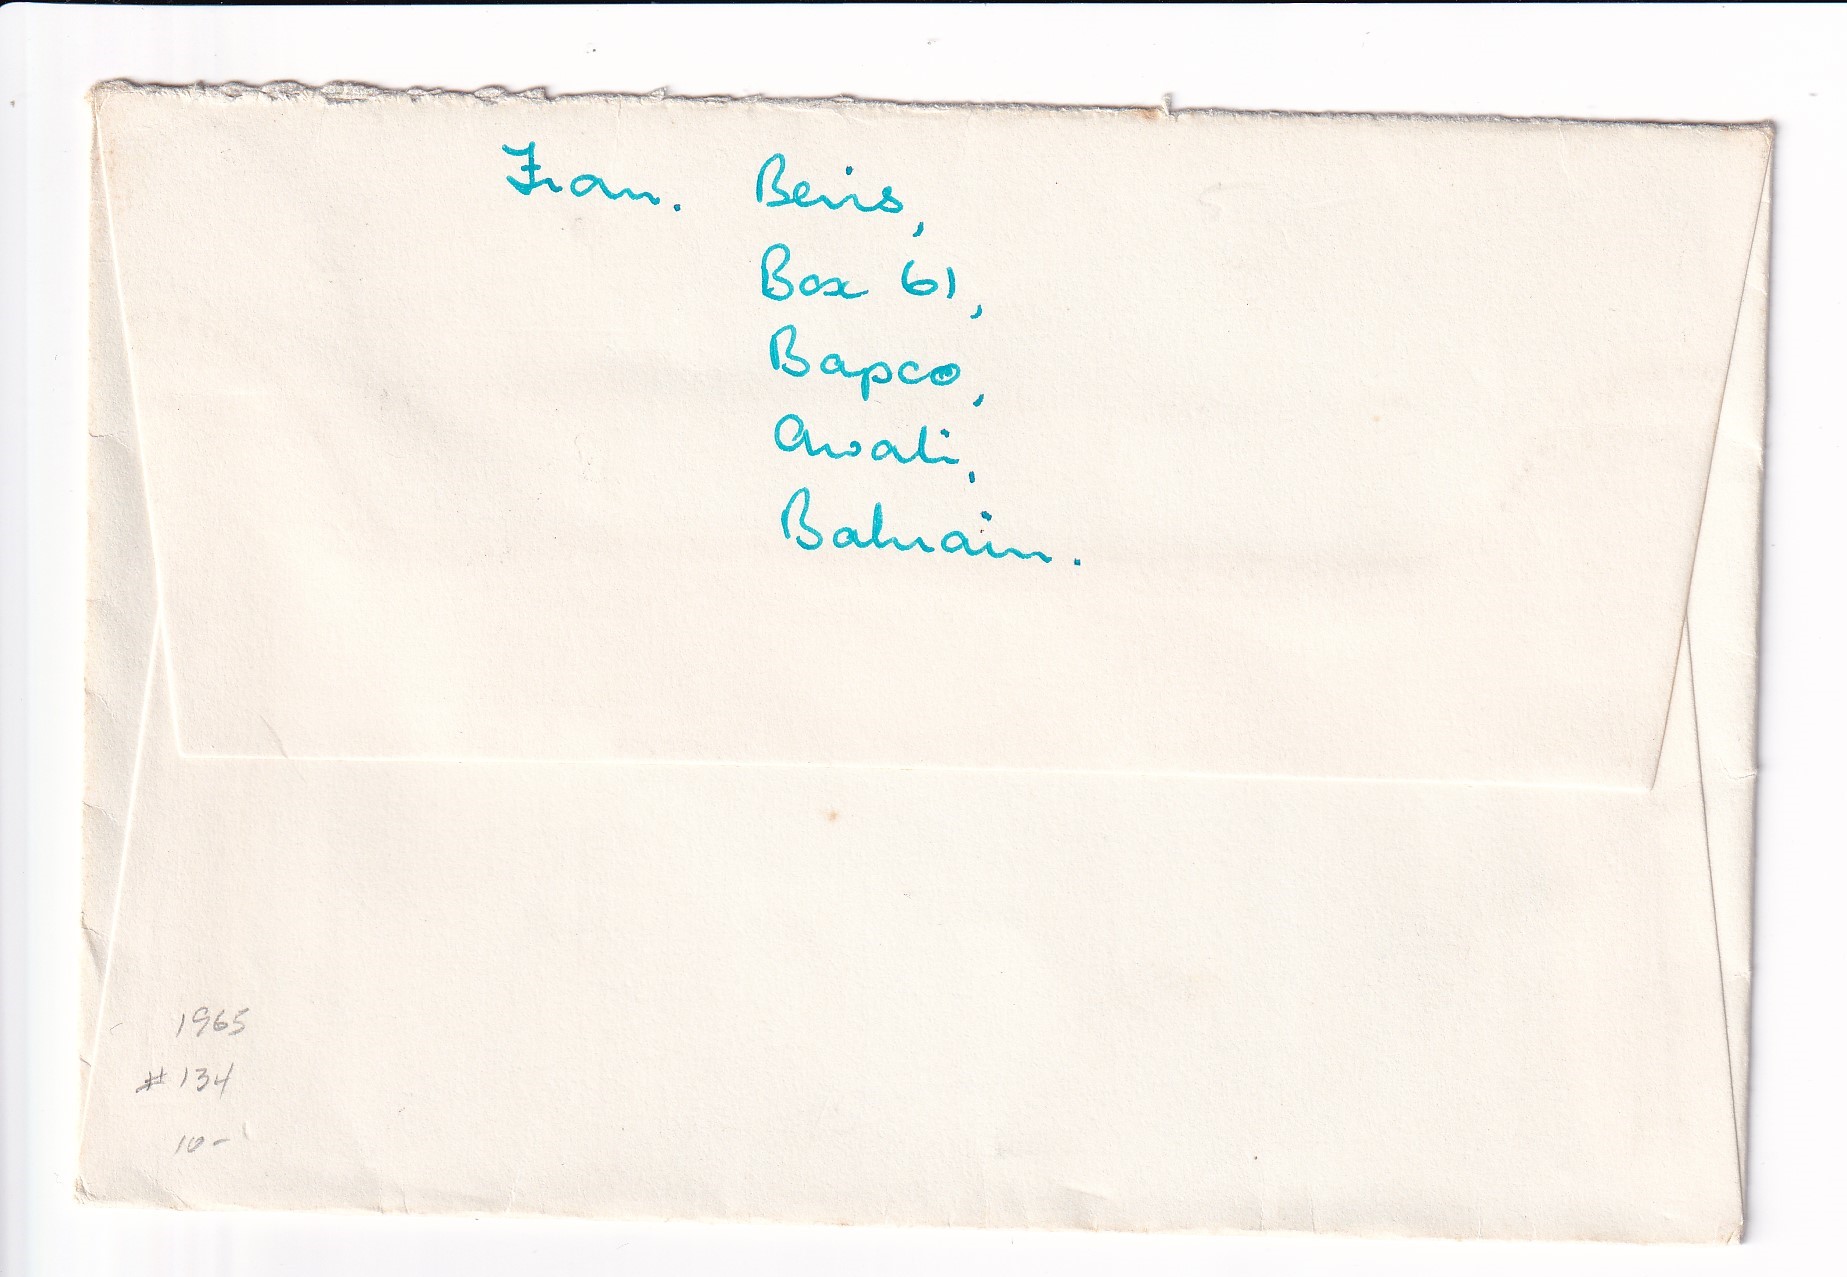 From. Bevis,
Box 61,
Bapco,
Awali,
Bahrain.
1965
#134
10-